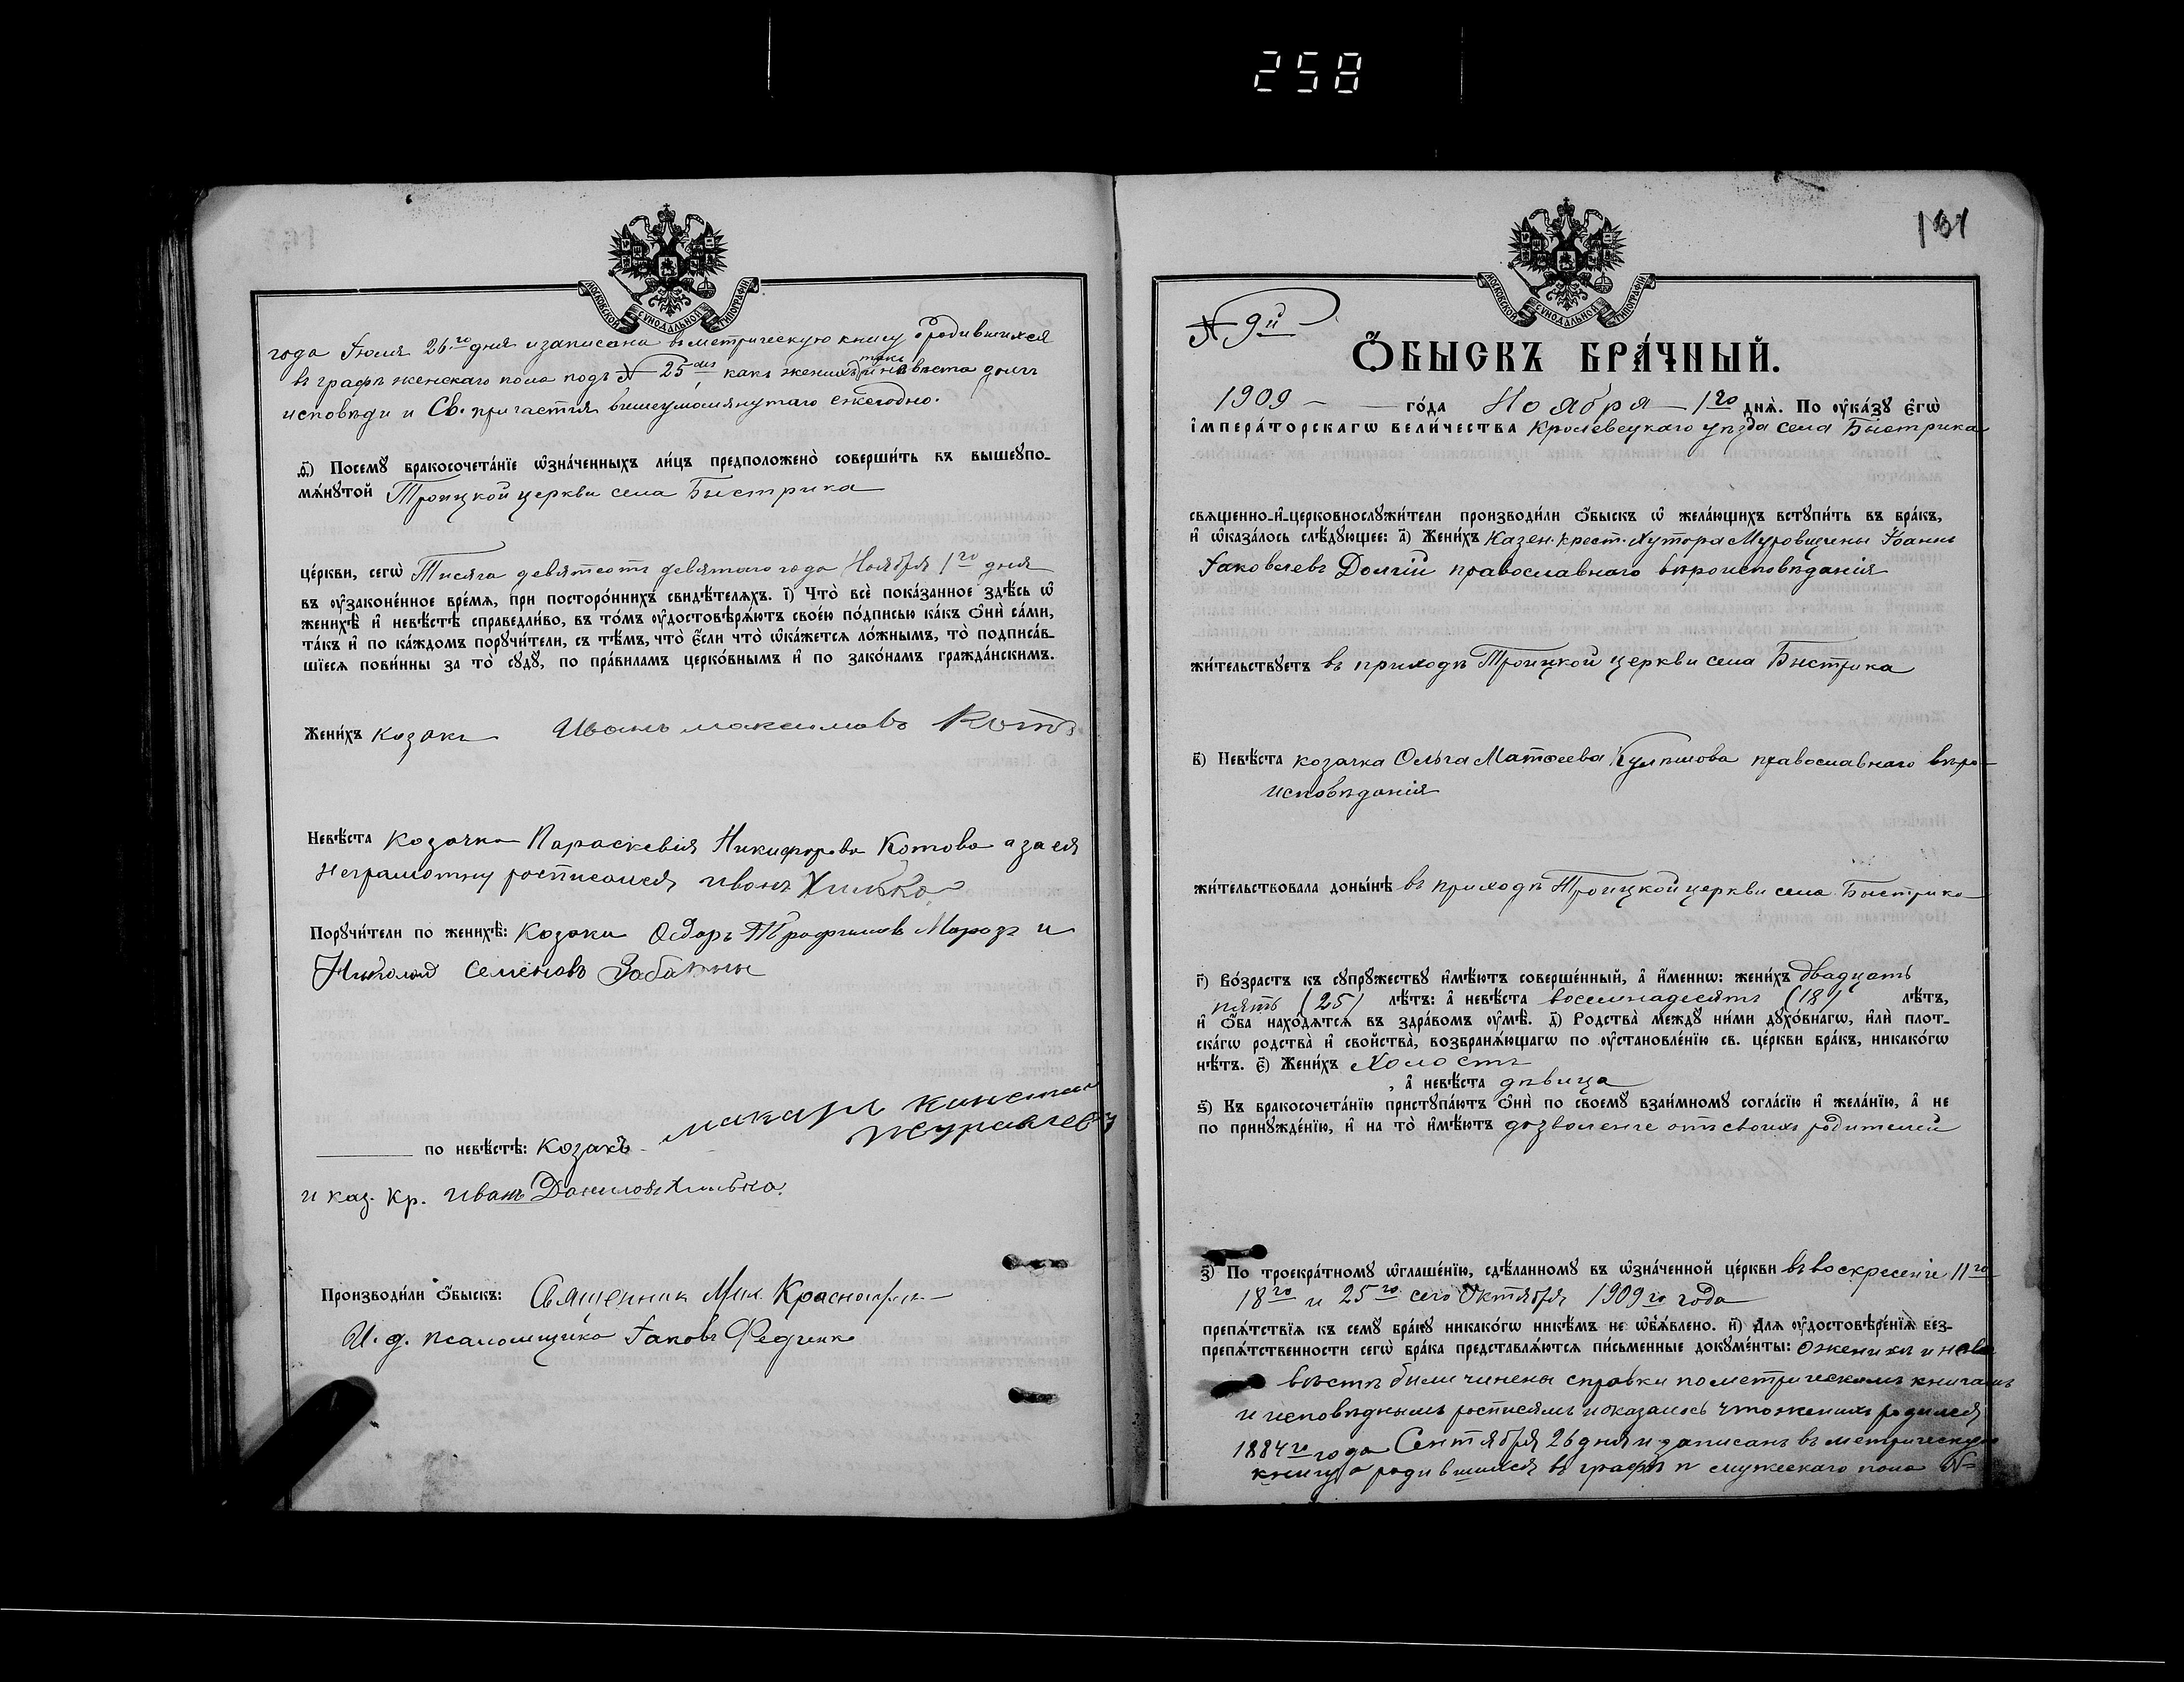 258
МОСКОВСКОЙ СѴНОДАЛЬНОЙ ТИПОГРАФІИ
года Іюля 26го дня и записана въ метрическую книгу о родившихся
въ графѣ женскаго пола подъ № 25 какъ женихъ такъ и невѣста были
исповѣди и Св. причастия вишеупомянутаго ежегодно.
ѳ҃) Посемꙋ бракосочета́нїе ѡ҆зна́ченныхъ ли́цъ предположено̀ соверши́ть въ вышеꙋпо-
мѧ́нꙋтой Троицкой церкви села Быстрика
це́ркви, сегѡ̀ Тисяча девятсотъ девятаго года Ноября 1го дня
въ ᲂу҆зако́не́нное вре́мѧ, при посторо́ннихъ свидѣ́телѧхъ. і҃) Что̀ всѐ пока́занное здѣ́сь ѡ҆
женихѣ̀ и҆ невѣ́стѣ справедли́во, въ то́мъ ᲂу҆достовѣрѧ́ютъ свое́ю по́дписью ка́къ ѻ҆нѝ са́ми,
та́къ и҆ по ка́ждомъ порꙋчи́тели, съ тѣ́мъ, что̀ є҆́сли что̀ ѡ҆ка́жетсѧ ло́жнымъ, то̀ подписа́в-
шїесѧ пови́нны за то̀ сꙋдꙋ̀, по пра́виламъ церко́внымъ и҆ по зако́намъ гражда́нскимъ.
Жени́хъ козакъ Иванъ максимовъ Котъ
Невѣ́ста козачка Параскевія Никифорова Котова а за ея
неграмотну росписался иванъ Хилько
Порꙋчи́тели по женихѣ̀: Козаки Ѳедоръ Трофимовъ Морозъ и
Николай Семеновъ
по невѣ́стѣ: козакъ макаръ
Журавлевъ
и каз. кр. иванъ Даниловъ Хилько.
Производи́ли ѻ҆́быскъ: Священник Мих.
И. д. псаломщика Іаковъ Федченко
131
МОСКОВСКОЙ СѴНОДАЛЬНОЙ ТИПОГРАФІИ
№ 9й
Ѻ҆́БЫСКЪ БРА́ЧНЫЙ.
1909 го́да Ноября 1го днѧ̀. По ᲂу҆ка́зꙋ є҆гѡ̀
і҆мпера́торскагѡ вели́чества Кролевецкаго уѣзда села Быстрика
свѧщенно-и҆-церковнослꙋжи́тели производи́ли ѻ҆́быскъ ѡ҆ жела́ющихъ встꙋпи́ть въ бра́къ,
и҆ ѡ҆каза́лось слѣ́дꙋющее: а҃) Жени́хъ Казен. крест. хутора Муровщины Іоанъ
Іаковлевъ Долгій православнаго вѣроисповѣданія
жи́тельствꙋетъ въ приходѣ Троицкой церкви села Быстрика
в҃) Невѣ́ста козачка Ольга Матѳеева православнаго вѣро-
исповѣданія
жи́тельствовала доны́нѣ въ приходѣ Троицкой церкви села Быстрика
г҃) Во́зрастъ къ сꙋпрꙋ́жествꙋ и҆мѣ́ютъ соверше́нный, а҆ и҆́меннѡ: жени́хъ двадцать
пять (25) лѣ́тъ: а҆ невѣ́ста восемнадесять (18) лѣ́тъ,
и҆ ѻ҆́ба нахо́дѧтсѧ въ здра́вомъ ᲂу҆мѣ̀. д҃) Родства̀ междꙋ̀ ни́ми дꙋхо́внагѡ, и҆лѝ плот-
ска́гѡ родства̀ и҆ свойства̀, возбранѧ́ющагѡ по ᲂу҆становле́нїю св. це́ркви бра́къ, никако́гѡ
нѣ́тъ. є҃) Жени́хъ холостъ
, а҆ невѣ́ста дѣвица
ѕ҃) Къ бракосочета́нїю пристꙋпа́ютъ ѻ҆нѝ по своемꙋ̀ взаи́мномꙋ согла́сїю и҆ жела́нїю, а҆ не
по принꙋжде́нїю, и҆ на то̀ и҆мѣ́ютъ дозволение отъ своихъ родителей
з҃) По троекра́тномꙋ ѡ҆глаше́нїю, сдѣ́ланномꙋ въ ѡ҆зна́ченной це́ркви въ воскресеніе 11го
18го и 25го сего Октября 1909го года
препѧ́тствїѧ къ семꙋ̀ бра́кꙋ никако́гѡ никѣ́мъ не ѡ҆б̾ѧ́влено. и҃) Длѧ̀ ᲂу҆достовѣре́нїѧ без-
препѧ́тственности сегѡ̀ бра́ка представлѧ́ютсѧ пи́сьменные докꙋме́нты: о женихѣ и
вѣстѣ были чинены справки по метрическимъ книгамъ
и исповѣднымъ росписямъ и оказалось что женихъ родился
1884го года Сентября 26 дня и записанъ въ метрическую
книгу о родившихся въ графѣ мужескаго пола №